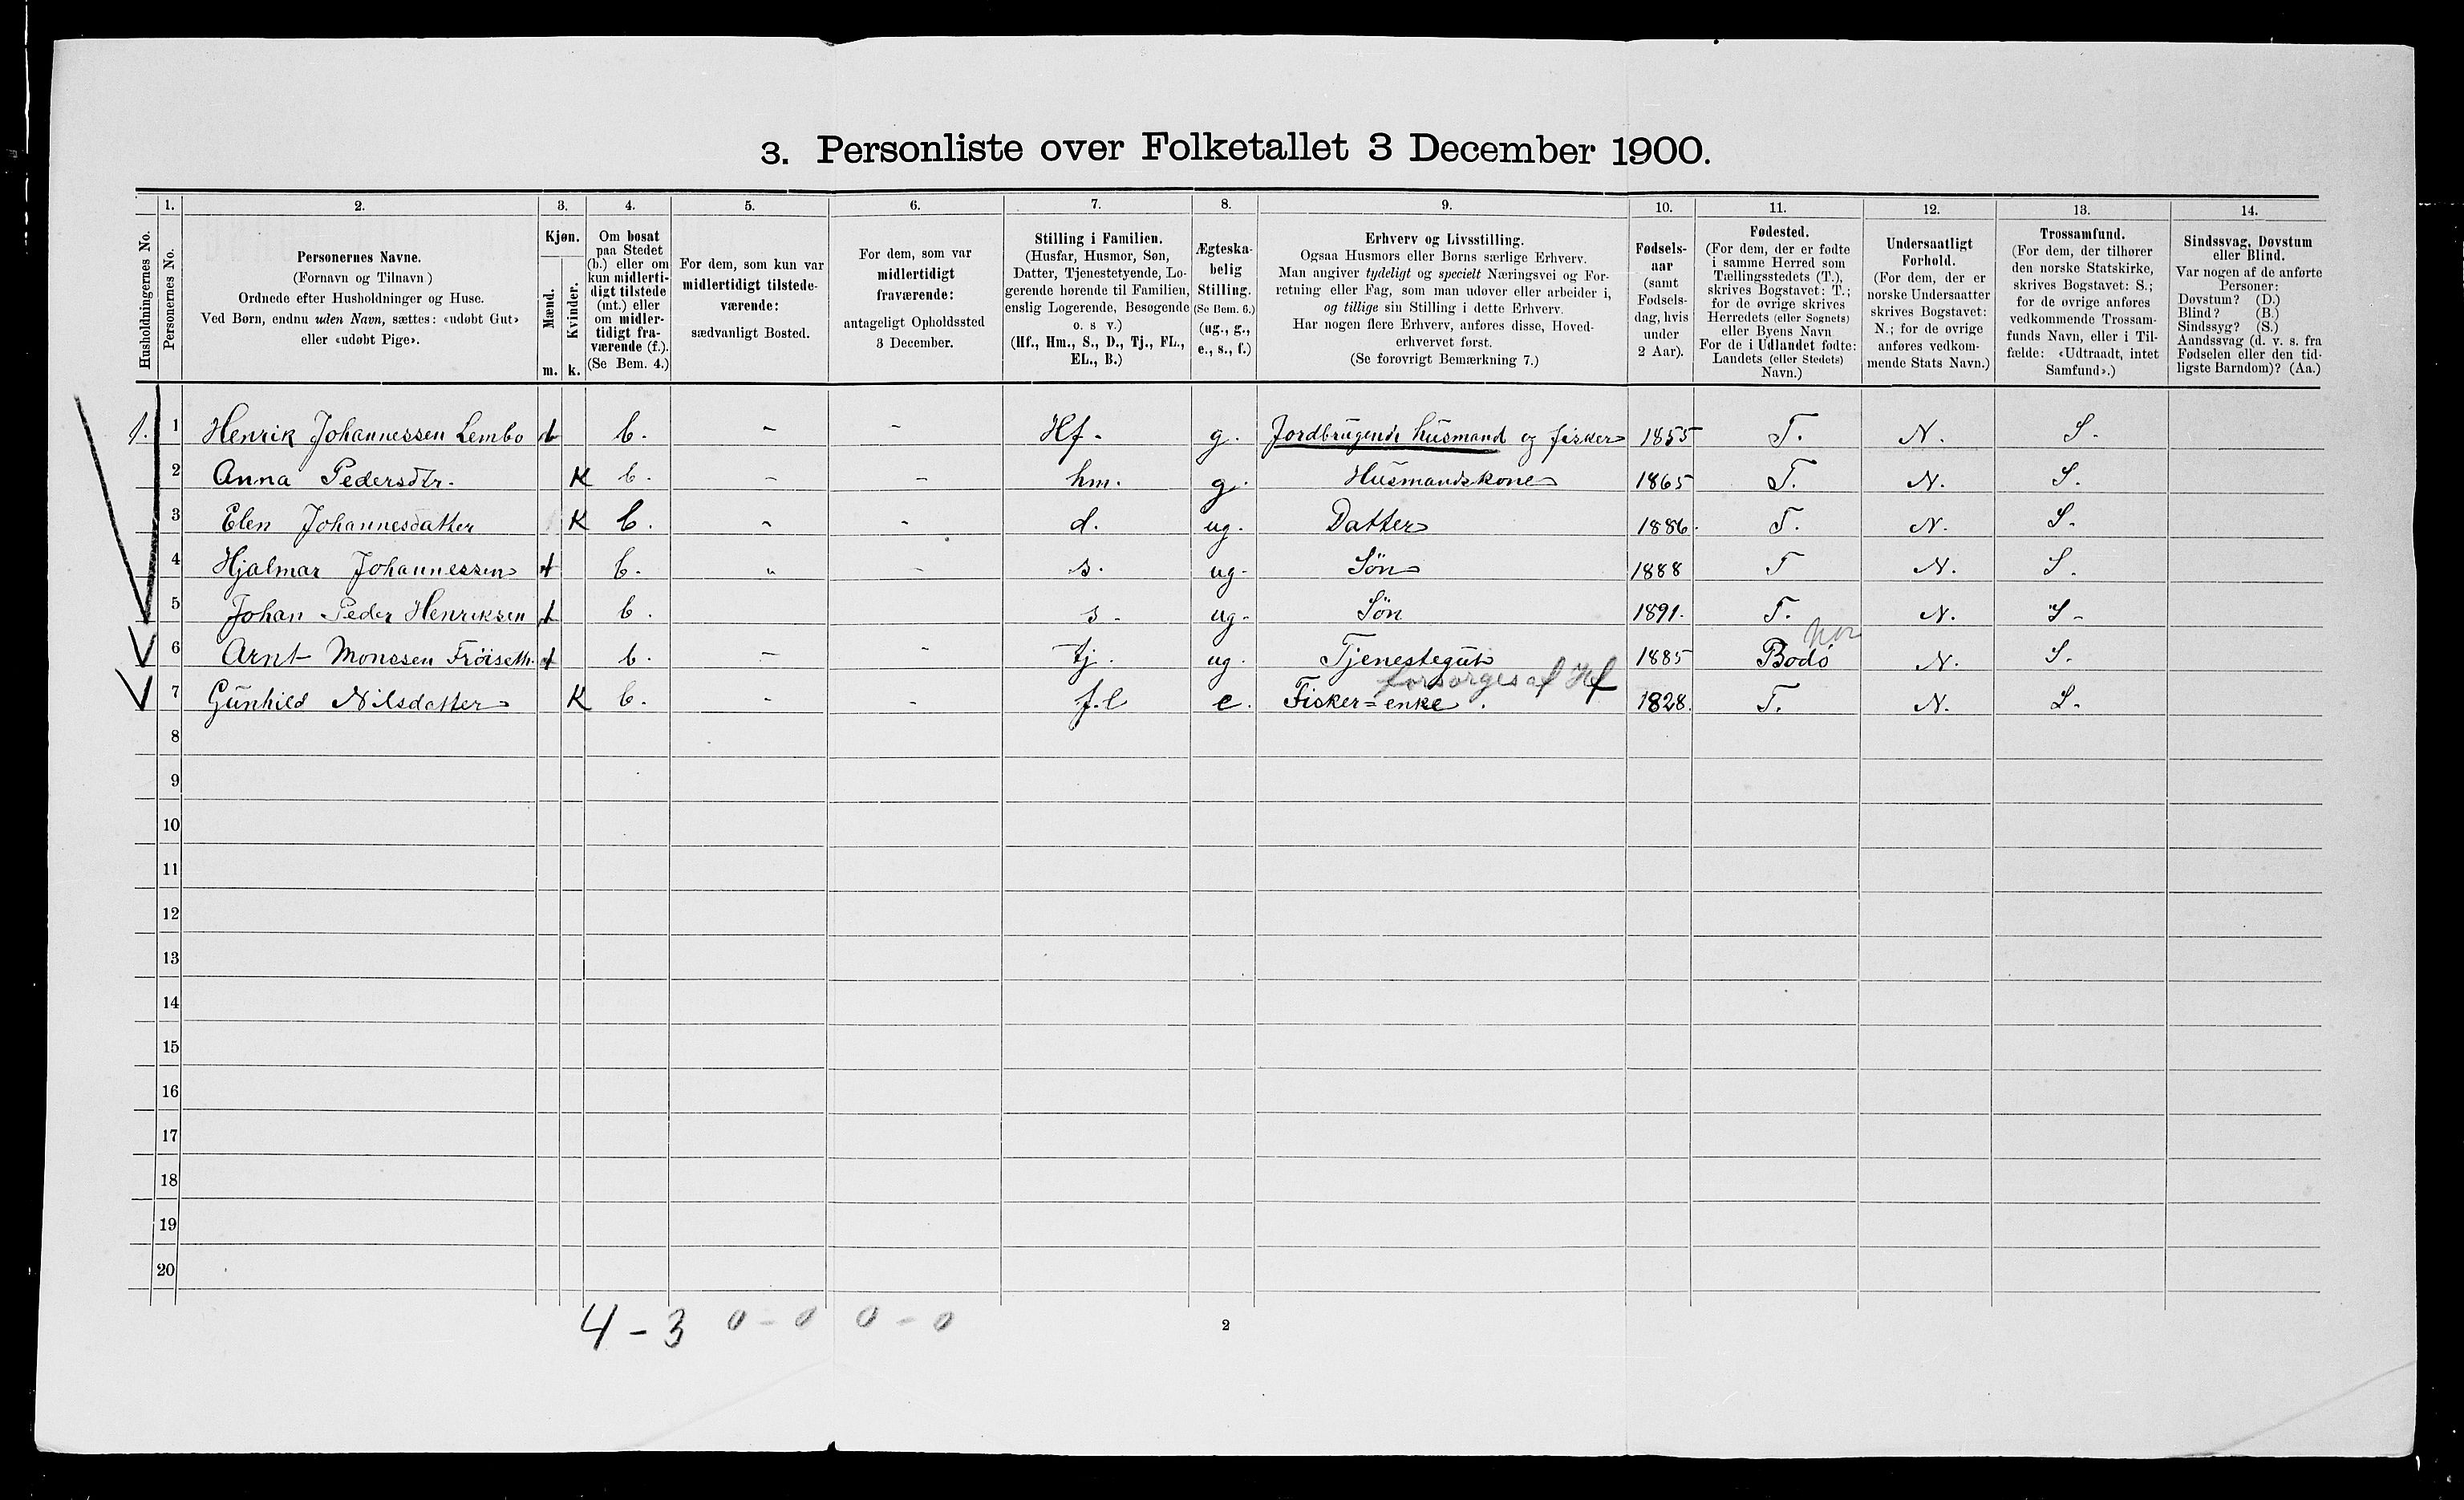 3. Personliste over Folketallet 3 December 1900.
Husholdningernes No.
1.
Personernes No.
2.
Personernes Navne.
(Fornavn og Tilnavn)
Ordnede efter Husholdninger og Huse.
Ved Børn, endnu uden Navn, sættes: «udøbt Gut»
eller «udøbt Pige».
3.
Kjøn.
Mænd.
Kvinder.
m. k.
4.
Om bosat
paa Stedet
(b.) eller om
kun midlerti-
digt tilstede
(mt.) eller
om midler-
tidigt fra-
værende (f.).
(Se Bem. 4.)
5.
For dem, som kun var
midlertidigt tilstede-
værende:
sædvanligt Bosted.
6.
For dem, som var
midlertidigt
fraværende:
antageligt Opholdssted
3 December.
7.
Stilling i Familien.
(Husfar, Husmor, Søn,
Datter, Tjenestetyende, Lo-
gerende hørende til Familien,
enslig Logerende, Besøgende
o. s v.)
(Hf., Hm., S., D., Tj., FL.,
EL., B.)
8.
Ægteska-
belig
Stilling.
(Se Bem. 6.)
(ug., g.,
e., s., f.)
9.
Erhverv og Livsstilling.
Ogsaa Husmors eller Børns særlige Erhverv.
Man angiver tydeligt og specielt Næringsvei og For-
retning eller Fag, som man udøver eller arbeider i,
og tillige sin Stilling i dette Erhverv.
Har nogen flere Erhverv, anføres disse, Hoved-
erhvervet først.
(Se forøvrigt Bemærkning 7.)
10.
Fødsels-
aar
(samt
Fødsels-
dag, hvis
under
2 Aar).
11.
Fødested.
(For dem, der er fødte
i samme Herred som
Tællingsstedets (T.),
skrives Bogstavet: T.;
for de øvrige skrives
Herredets (eller Sognets)
eller Byens Navn
For de i Udlandet fødte:
Landets (eller Stedets)
Navn.)
12.
Undersaatligt
Forhold.
(For dem, der er
norske Undersaatter
skrives Bogstavet:
N.; for de øvrige
anføres vedkom-
mende Stats Navn.)
13.
Trossamfund.
(For dem, der tilhører
den norske Statskirke,
skrives Bogstavet: S.;
for de øvrige anføres
vedkommende Trossam-
funds Navn, eller i Til-
fælde: «Udtraadt, intet
Samfund».)
14.
Sindssvag, Døvstum
eller Blind.
Var nogen af de anførte
Personer:
Døvstum? (D.)
Blind? (B.)
Sindssyg? (S.)
Aandssvag (d. v. s. fra
Fødselen eller den tid-
ligste Barndom)? (Aa.)
1. 1 Henrik Johannessen Lembo b. - - Hf. g. Jordbrugende husmand og fisker 1855 T. N. S.
2 Anna Pedersdtr. K b. - - hm. g. Husmandskone 1865 T. N. S.
3 Elen Johannesdatter K b. - - d. ug. Datter 1886. T. N. S.
4 Hjalmar Johannessen b. - - s. ug. Sön 1888 T N. S.
5 Johan Peder Henriksen b. s. ug. Sön 1891. T. N. S.
6 Arnt Monssen Fröiseth. b. - - tj. ug. Tjenestegut 1885 Bodö N. S.
forsørges af Hf
7 Gunhild Nilsdatter K b. - - f.l e. Fisker=enke. 1828. T. N. S.
8
9
10
11
12
13
14
15
16
17
18
19
20
4 - 3 0 - 0 0 - 0
2